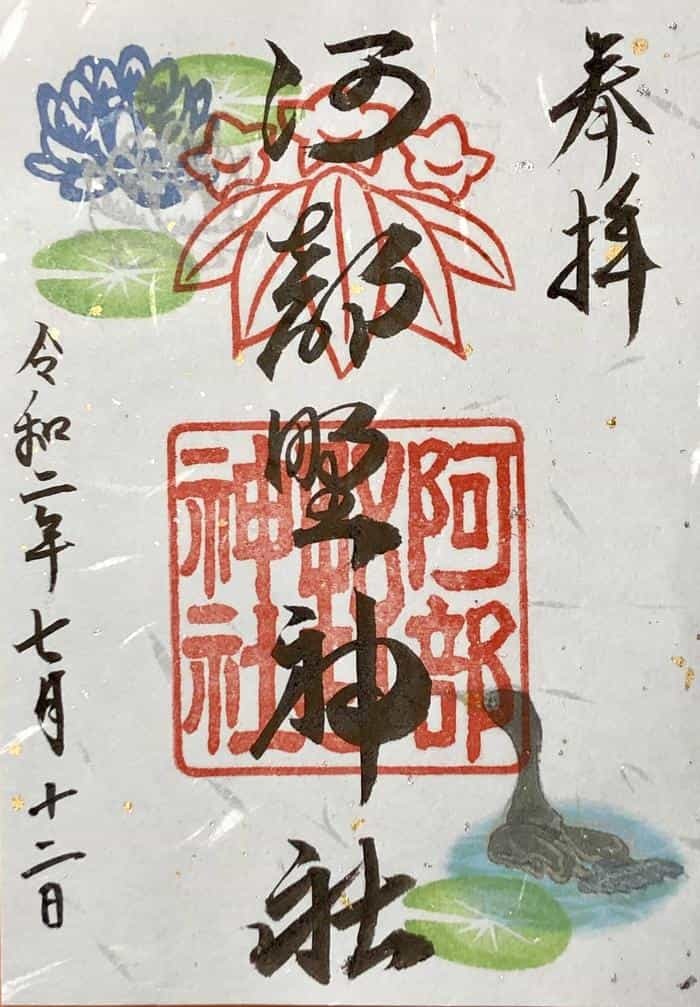 奉拝
阿部野神社
令和二年七月十二日
阿部
野
神社